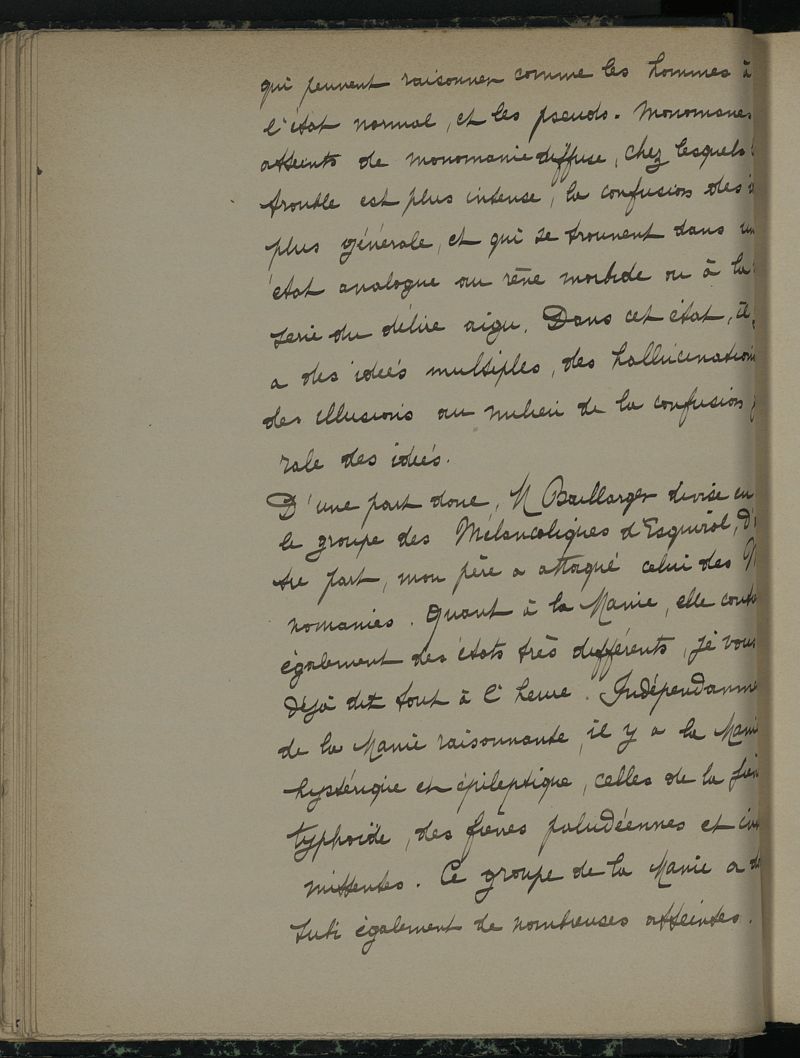 qui peuvent raisonner comme les hommes à
l'état normal, et les pseudo-monomanes
atteints de monomanie diffuse, chez lesquels l
trouble est plus intense, la confusion des i
plus générale, et qui se trouvent dans un
état analogue au rêve morbide ou à la
serie du délire aigu. Dans cet état, il y
a des idées multiples, des hallucination
des illusions au milieu de la confusion g
rale des idées.
D'une part donc, M Baillarger divise en
le groupe des Mélancoliques d'Esquirol, D'
tre part, mon père a attaqué celui des M
nomanies. Quant à la Manie, elle cont
également des états très différents, je vous
déjà dit tout à l'heure. Indépendamme
de la Manie raisonnante, il y a la Mani
hystérique et épileptique, celles de la fiè
typhoïde, des fièvres paludéennes et in
mittentes. Ce groupe de la Manie a d
subi également de nombreuses atteintes.